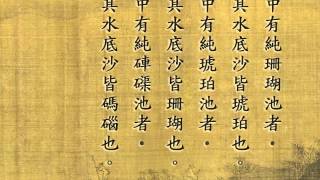 中有純珊瑚池者。
其水底沙皆琥珀也。
中有純琥珀池者。
其水底沙皆珊瑚也。
中有純硨磲池者。
其水底沙皆碼碯也。